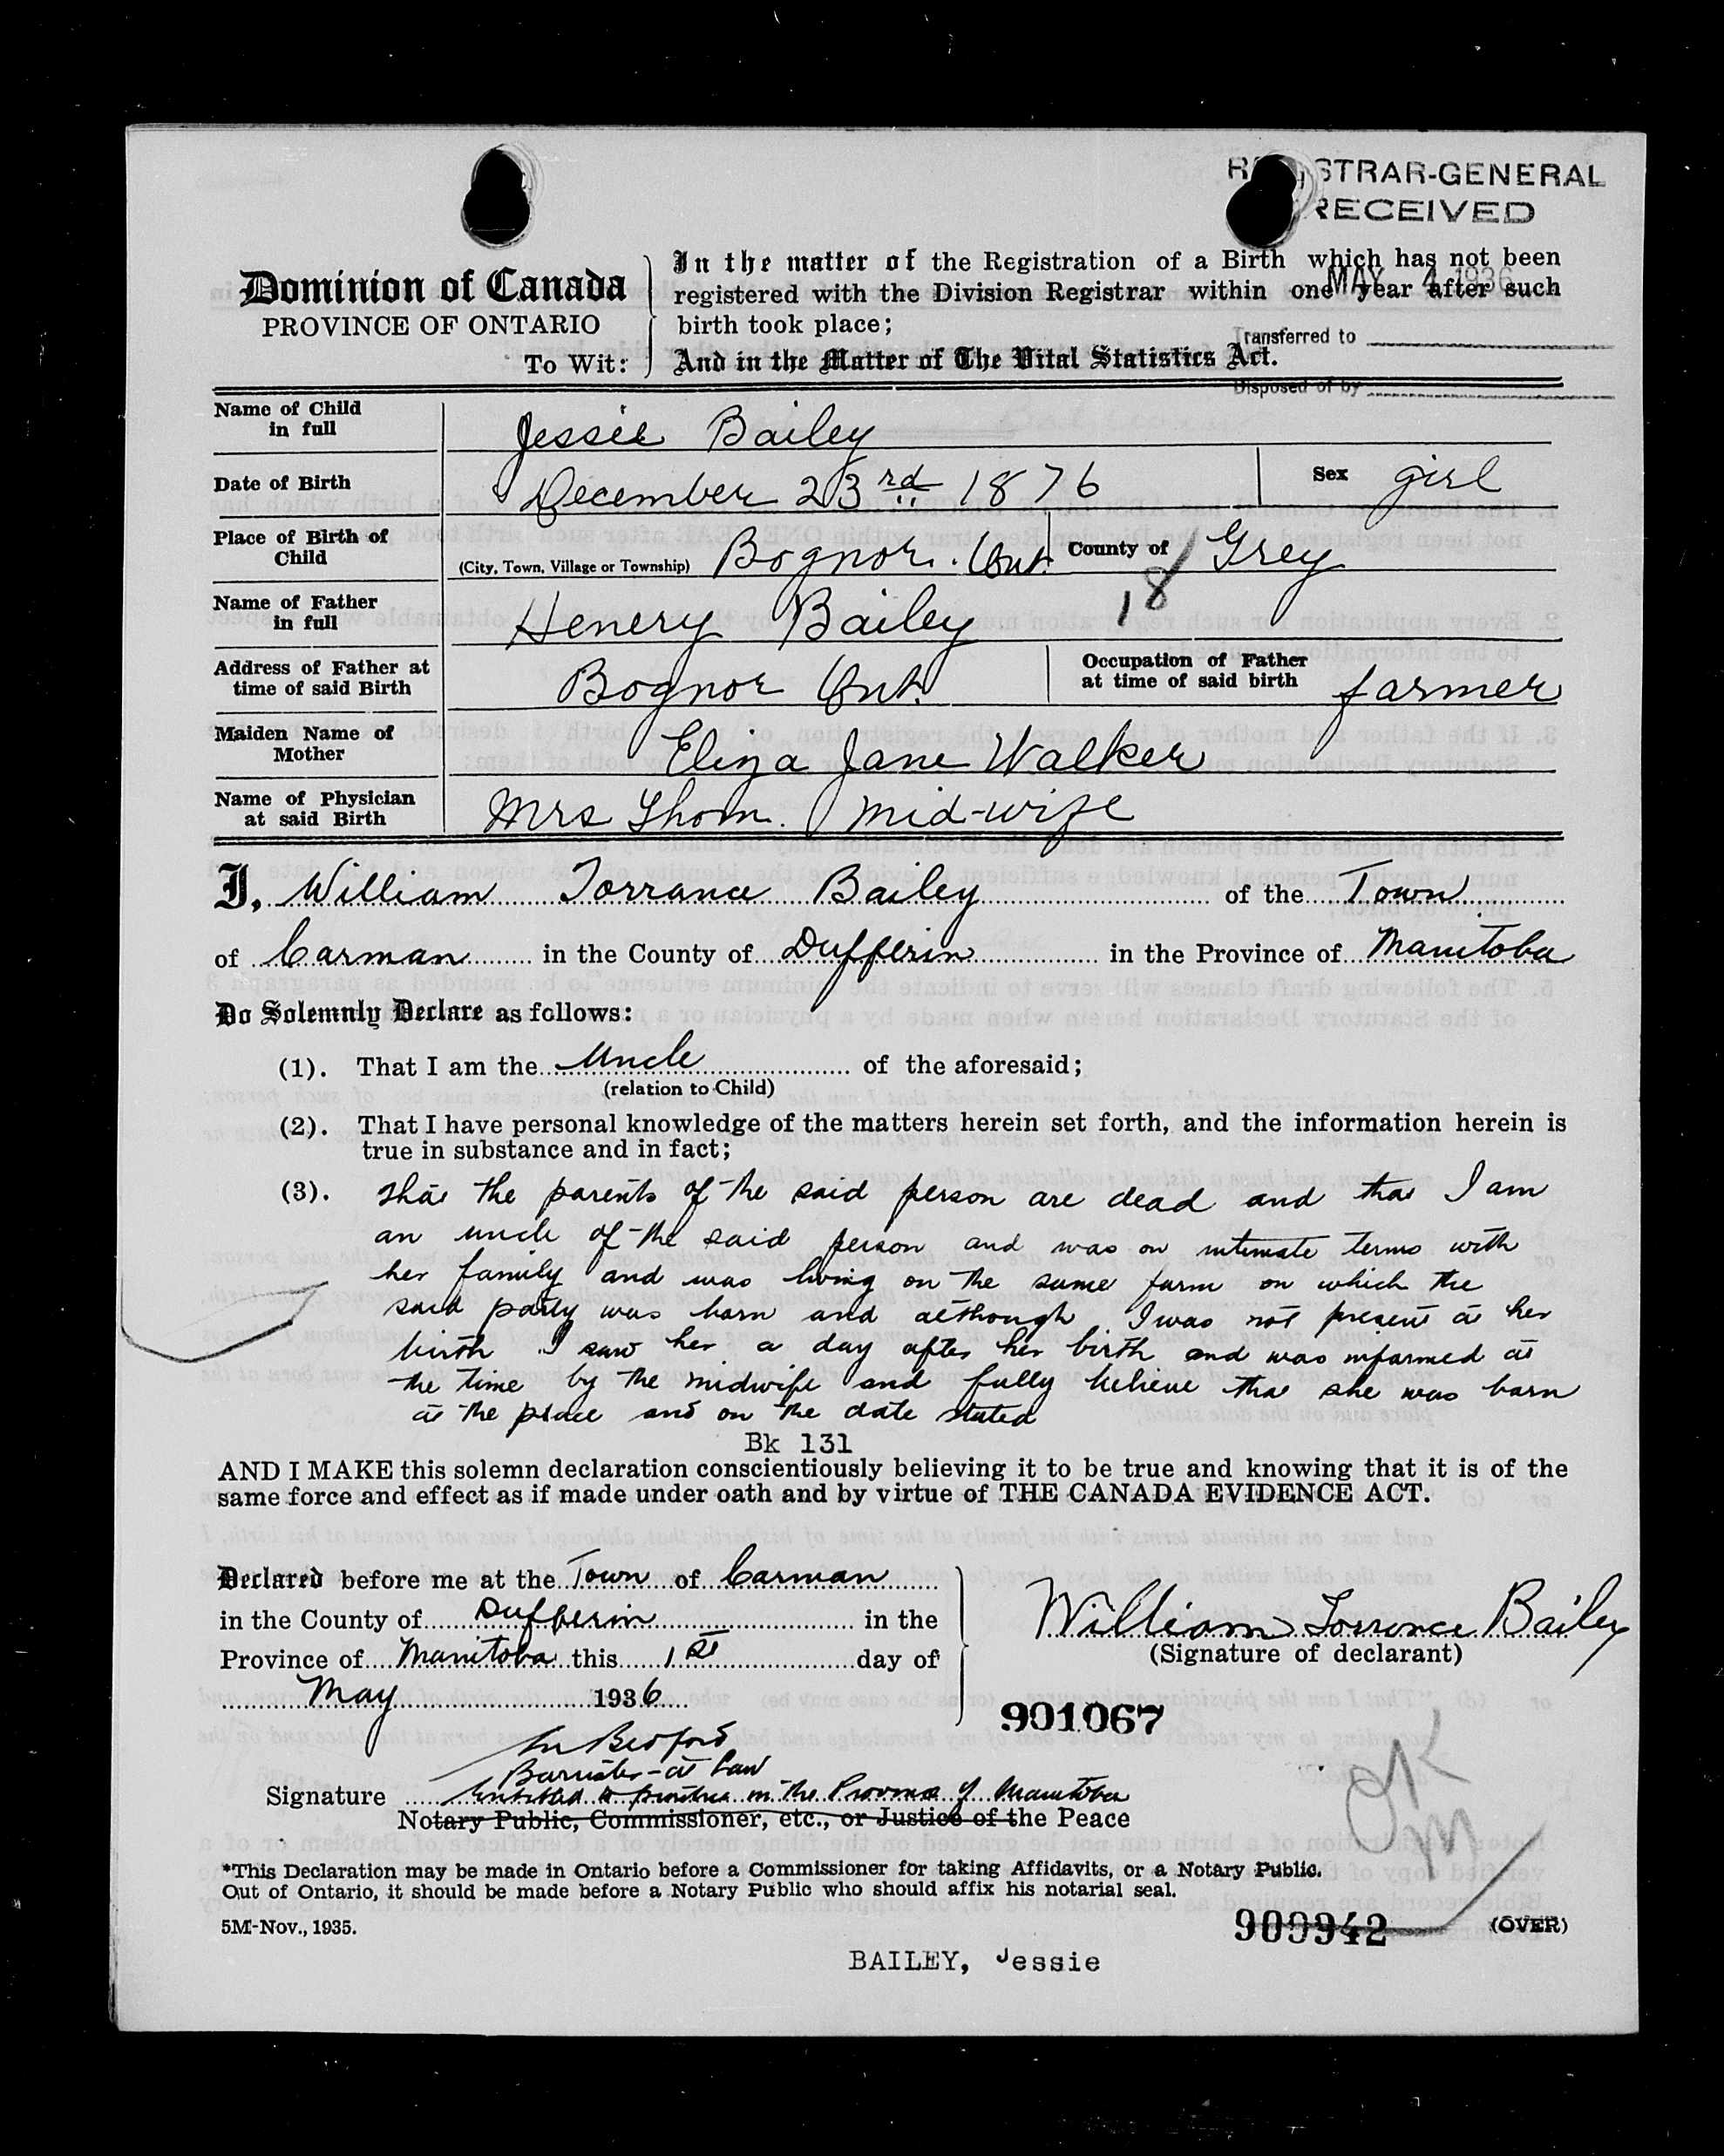 REGISTRAR-GENERAL
RECEIVED
MAY 4 1936
Transferred to
Disposed of by
Dominion of Canada
PROVINCE OF ONTARIO
To Wit:
In the matter of the Registration of a Birth which has not been
registered with the Division Registrar within one year after such
birth took place;
And in the Matter of The Vital Statistics Act.
Name of Child
in full
Jessie Bailey
Date of Birth
December 23rd 1876
Sex girl
Place of Birth of
Child
(City, Town, Village or Township) Bognor. Ont. County of Grey
18
Name of Father
in full
Henery Bailey
Address of Father at
time of said Birth
Bognor Ont.
Occupation of Father
at time of said birth
farmer
Maiden Name of
Mother
Eliza Jane Walker
Name of Physician
at said Birth
Mrs Thom. mid-wife
I, William Torrance Bailey of the Town
of Carman in the County of Dufferin in the Province of Manitoba
Do Solemnly Declare as follows:
(1). That I am the Uncle of the aforesaid;
(relation to Child)
(2). That I have personal knowledge of the matters herein set forth, and the information herein is
true in substance and in fact;
(3). That the parents of the said person are dead and that I am
an uncle of the said person and was on intimate terms with
her family and was living on the same farm on which the
said party was born and although I was not present at her
birth I saw her a day after her birth and was informed at
the time by the midwife and fully believe that she was born
at the place and on the date stated
Bk 131
AND I MAKE this solemn declaration conscientiously believing it to be true and knowing that it is of the
same force and effect as if made under oath and by virtue of THE CANADA EVIDENCE ACT.
Declared before me at the Town of Carman
in the County of Dufferin in the
Province of Manitoba this 1st day of
May 1936
William Torrance Bailey
(Signature of declarant)
901067
Bedford
Barrister-at Law
Signature Entitled to practice in the Province of Manitoba
Notary Public, Commissioner, etc., or Justice of the Peace
OK
*This Declaration may be made in Ontario before a Commissioner for taking Affidavits, or a Notary Public.
Out of Ontario, it should be made before a Notary Public who should affix his notarial seal.
5M-Nov., 1935.
909942
(OVER)
BAILEY, Jessie